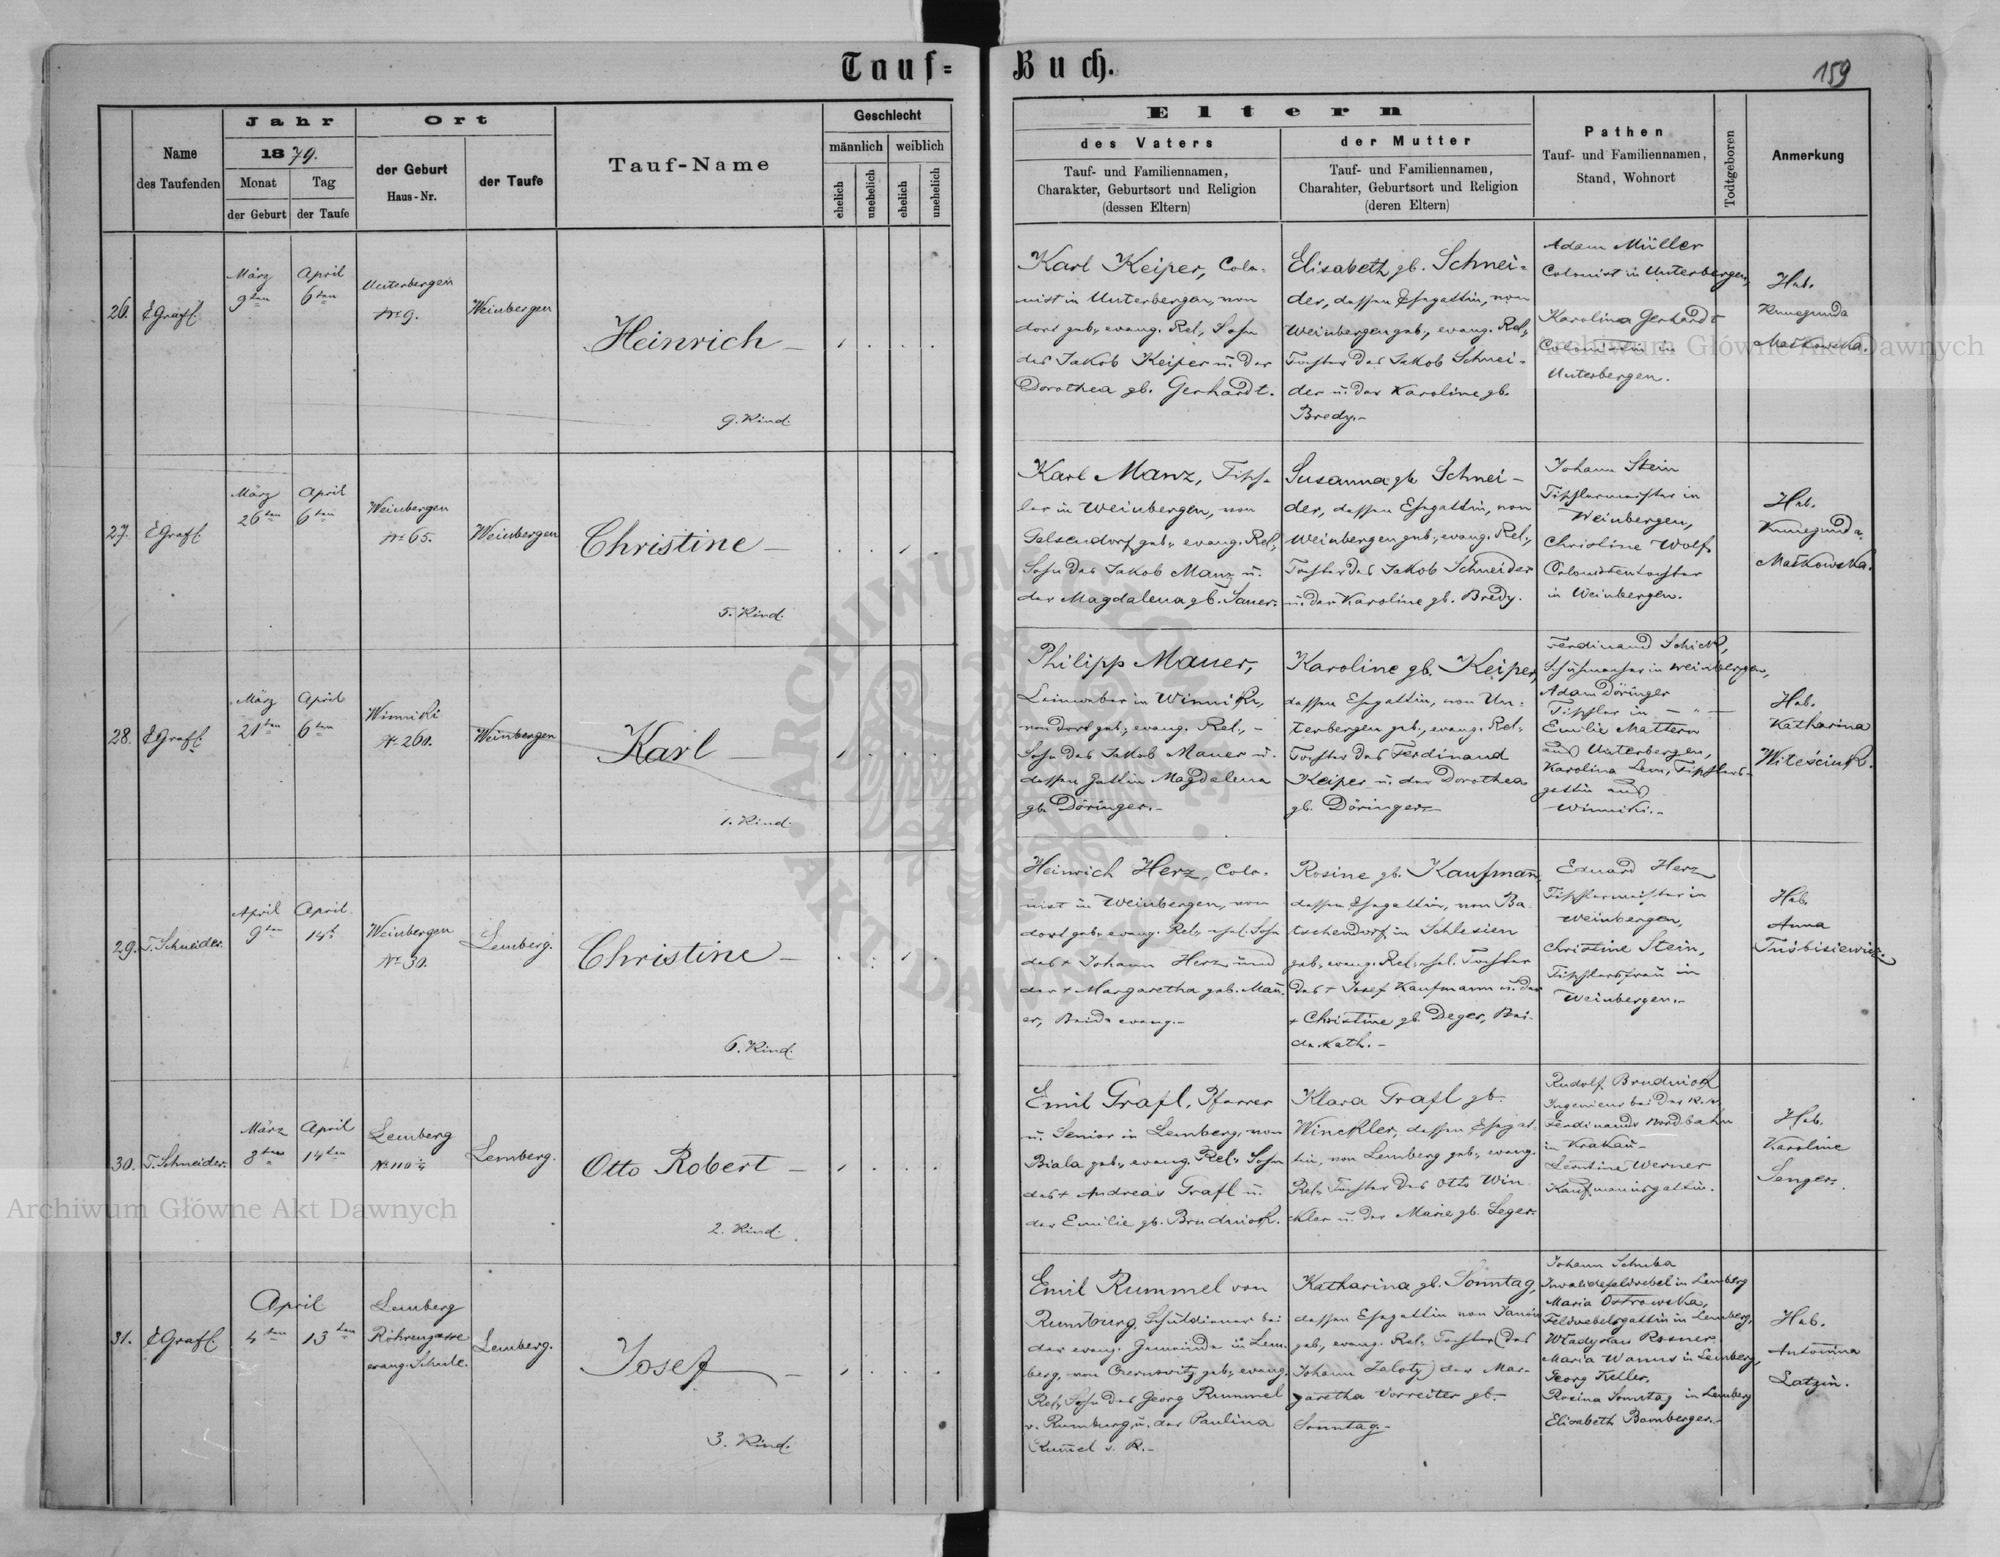 Tauf=
Buch.
159
Name
des Taufenden
Jahr
1879.
Monat
der Geburt
Tag
der Taufe
Ort
der Geburt
Haus-Nr.
der Taufe
Tauf-Name
Geschlecht
männlich
weiblich
ehelich
unehelich
ehelich
unehelich
Eltern
des Vaters
Tauf- und Familiennamen,
Charakter, Geburtsort und Religion
(dessen Eltern)
der Mutter
Tauf- und Familiennamen,
Charahter, Geburtsort und Religion
(deren Eltern)
Pathen
Tauf- und Familiennamen,
Stand, Wohnort
Todtgeboren
Anmerkung
26.
EGrafl.
März
9ten
April
6ten
Unterbergen
Nr 9.
Weinbergen
Heinrich
9. Kind.
Karl Keiper, Colo-
nist in Unterbergen, von
dort geb., evang. Rel., Sohn
des Jakob Keiper u. der
Dorothea gb. Gerhardt.
Elisabeth gb. Schnei-
der, dessen Ehegattin, von
Weinbergen geb., evang. Rel.,
Tochter des Jakob Schnei-
der u. der Karoline gb.
Bredy.-
Adam Müller
Colonist in Unterbergen,
Karolina Gerhardt
Colonistin in
Unterbergen.
Heb.
Kunegunda
Maćkowska.
27.
EGrafl.
März
26ten
April
6ten
Weinbergen
Nr 65.
Weinbergen
Christine
5. Kind.
Karl Manz, Tisch-
ler in Weinbergen, von
Gelsendorf geb., evang. Rel.,
Sohn des Jakob Manz u.
der Magdalena gb. Sauer.
Susanna gb. Schnei-
der, dessen Ehegattin, von
Weinbergen geb., evang. Rel.,
Tochter des Jakob Schneider
u. der Karoline gb. Bredy.
Johann Stein
Tischlermeister in
Weinbergen,
Christine Wolf
Colonistentochter
in Weinbergen.
Heb.
Kunegunda
Maćkowska.
28.
EGrafl.
März
21ten
April
6ten
Winniki
N. 260.
Weinbergen
Karl
1. Kind.
Philipp Mauer,
Leinweber in Winniki,
von dort geb., evang. Rel.,-
Sohn des Jakob Mauer u.
dessen Gattin Magdalena
gb. Döringer.-
Karoline gb. Keiper,
dessen Ehegattin, von Un-
terbergen geb., evang. Rel.
Tochter des Ferdinand
Keiper u. der Dorothea
gb. Döringer.-
Ferdinand Schick,
Schuhmacher in Weinbergen,
Adam Döringer
Tischler in - " -
Emilie Mattern
aus Unterbergen,
Karolina Lem, Tischlers-
gattin aus
Winniki.-
Heb.
Katharina
29.
T. Schneider.
April
9ten
April
14t
Weinbergen
Nr 30.
Lemberg.
Christine
6. Kind.
Heinrich Herz, Colo-
nist in Weinbergen, von
dort geb., evang. Rel., ehel. Sohn
des + Johann Herz und
der + Margaretha geb. Mau-
er, Beide evang.-
Rosine gb. Kaufman,
dessen Ehegattin, von Ba-
tschendorf in Schlesien
geb., evang. Rel., ehel. Tochter
des + Josef Kaufmann u. der
+ Christine gb. Deger, Bei-
de kath.-
Eduard Herz
Tischlermeister in
Weinbergen,
Christine Stein,
Tischlersfrau in
Weinbergen.-
Heb.
Anna
30.
T. Schneider.
März
8ten
April
14ten
Lemberg
No 110 ¼
Lemberg.
Otto Robert
2. Kind.
Emil Grafl, Pfarrer
u. Senior in Lemberg, von
Biala geb., evang. Rel., Sohn
des + Andreas Grafl u.
der Emilie gb. Brudniok.
Klara Grafl gb.
Winckler, dessen Ehegat-
tin, von Lemberg geb., evang.
Rel., Tochter des Otto Win-
ckler u. der Marie gb. Leger.
Rudolf Brudniok
Ingenieur bei der k. k.
Ferdinands Nordbahn
in Krakau-
Leontine Werner
Kaufmannsgattin.
Heb.
Karoline
Senger.
31.
EGrafl.
April
4ten
13ten
Lemberg
Röhrengasse
evang. Schule.
Lemberg.
Josef
3. Kind.
Emil Rummel von
Rumburg, Schuldiener bei
der evang. Gemeinde in Lem-
berg, von Czernowitz geb., evang.
Rel., Sohn des Georg Rummel
v. Rumburg u. der Paulina
Rummel v. R.-
Katharina gb. Sonntag,
dessen Ehegattin von Janów
geb., evang. Rel., Tochter (des
Johann Zaloty) der Mar-
garetha Vorreiter gb.-
Sonntag.-
Johann Schuba
Invalidefeldwebel in Lemberg
Maria Ostrowska,
Feldwebelsgattin in Lemberg,
Władysław Rosner
Maria Wanus in Lemberg,
Georg Keller,
Rosina Sonntag in Lemberg
Elisabeth Bamberger.-
Heb.
Antonina
Latzin.
Archiwum Główne Akt Dawnych
Archiwum Główne Akt Dawnych
ARCHIWUM GŁÓWNE
AKT DAWNYCH